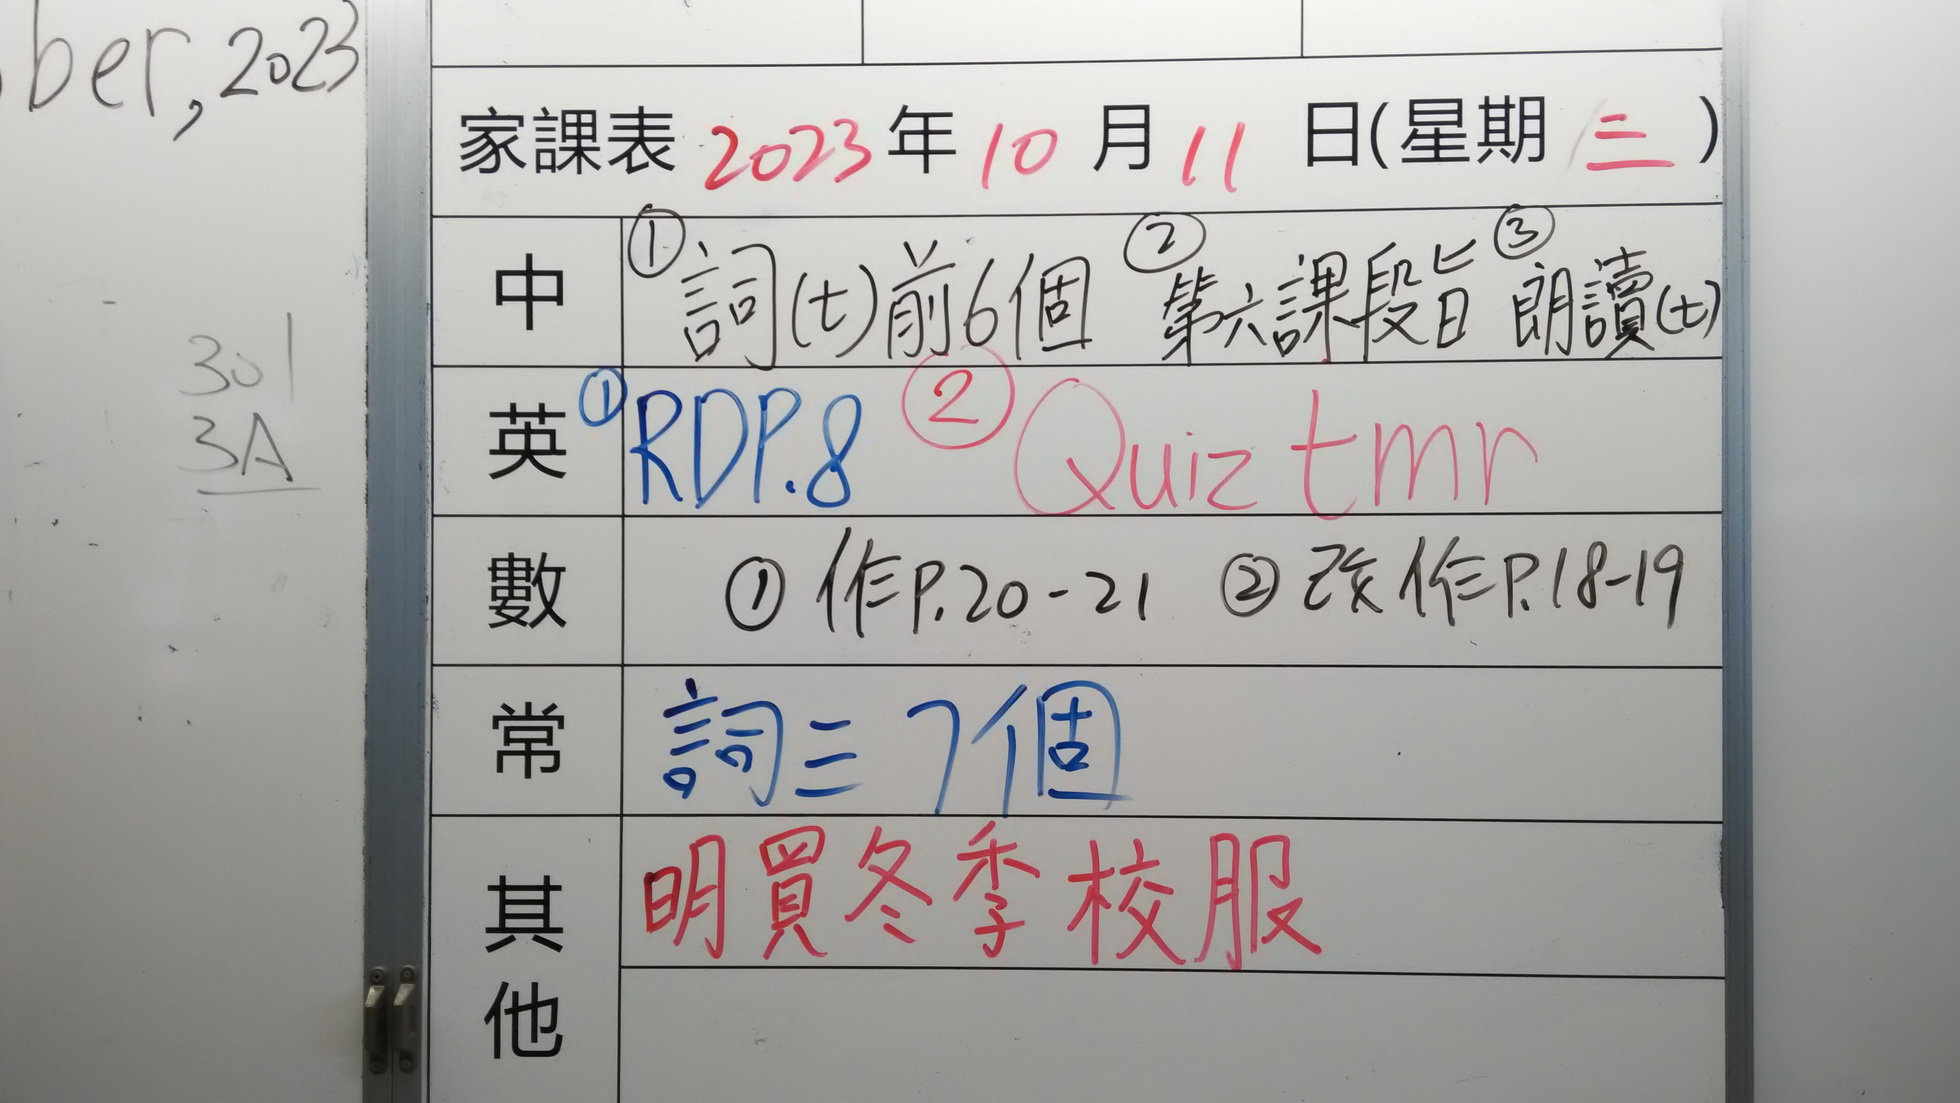 ber, 2023
301
3A
家課表 2023 年 10 月 11 日(星期 三 )
中 ① 詞(七)前6個 ② 第六課段旨 ③ 朗讀(七)
英 ① RDP.8 ② Quiz tmr
數 ① 作P.20-21 ② 改作P.18-19
常 詞三 7個
其他 明買冬季校服